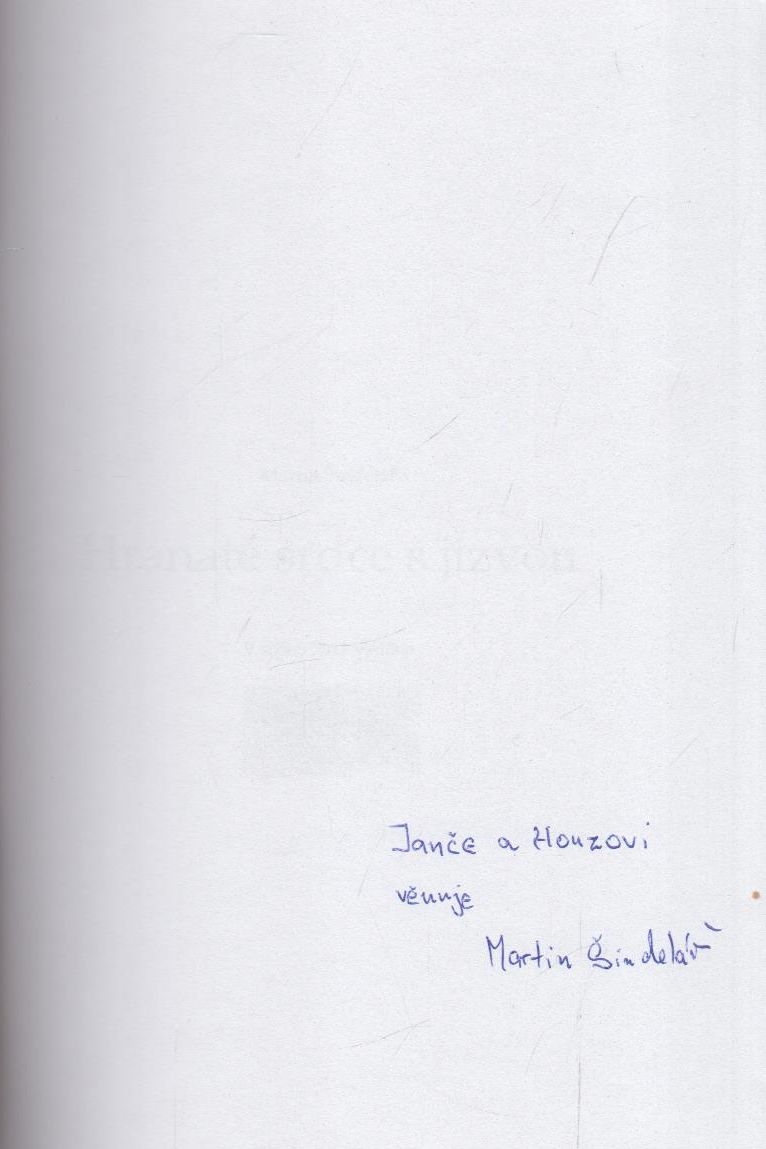 Hranaté srdce s jizvou
Janče a Honzovi
věnuje
Martin Šindelář